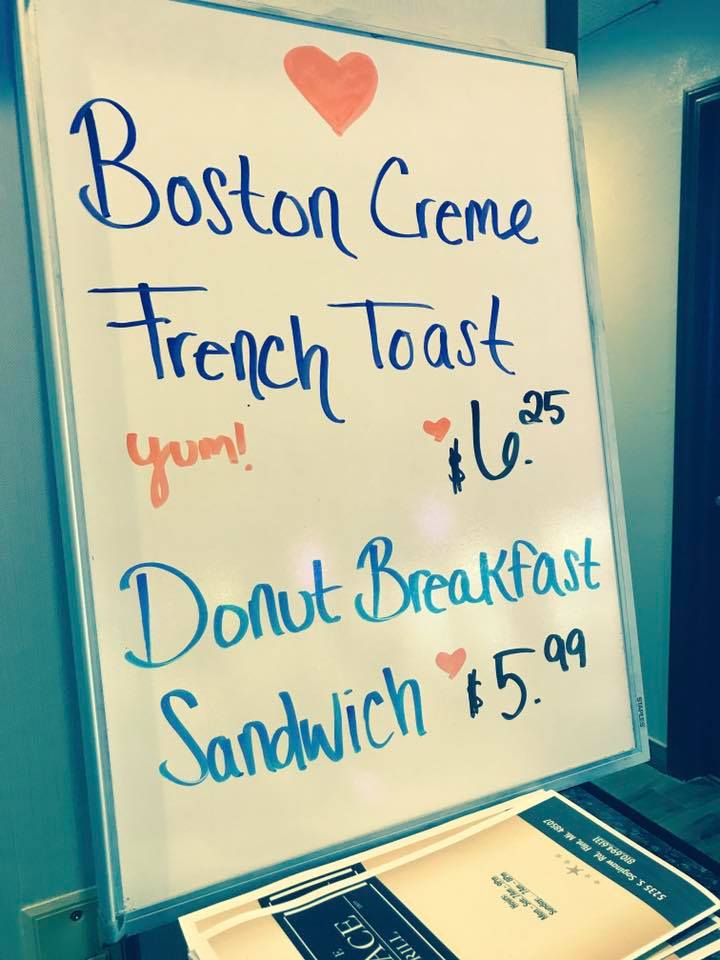 Boston Creme
French Toast
yum! $6.25
Donut Breakfast
Sandwich $5.99
STAPLES
5235 S. Saginaw Rd. Flint, MI. 48507
810.694.6131
Hours: